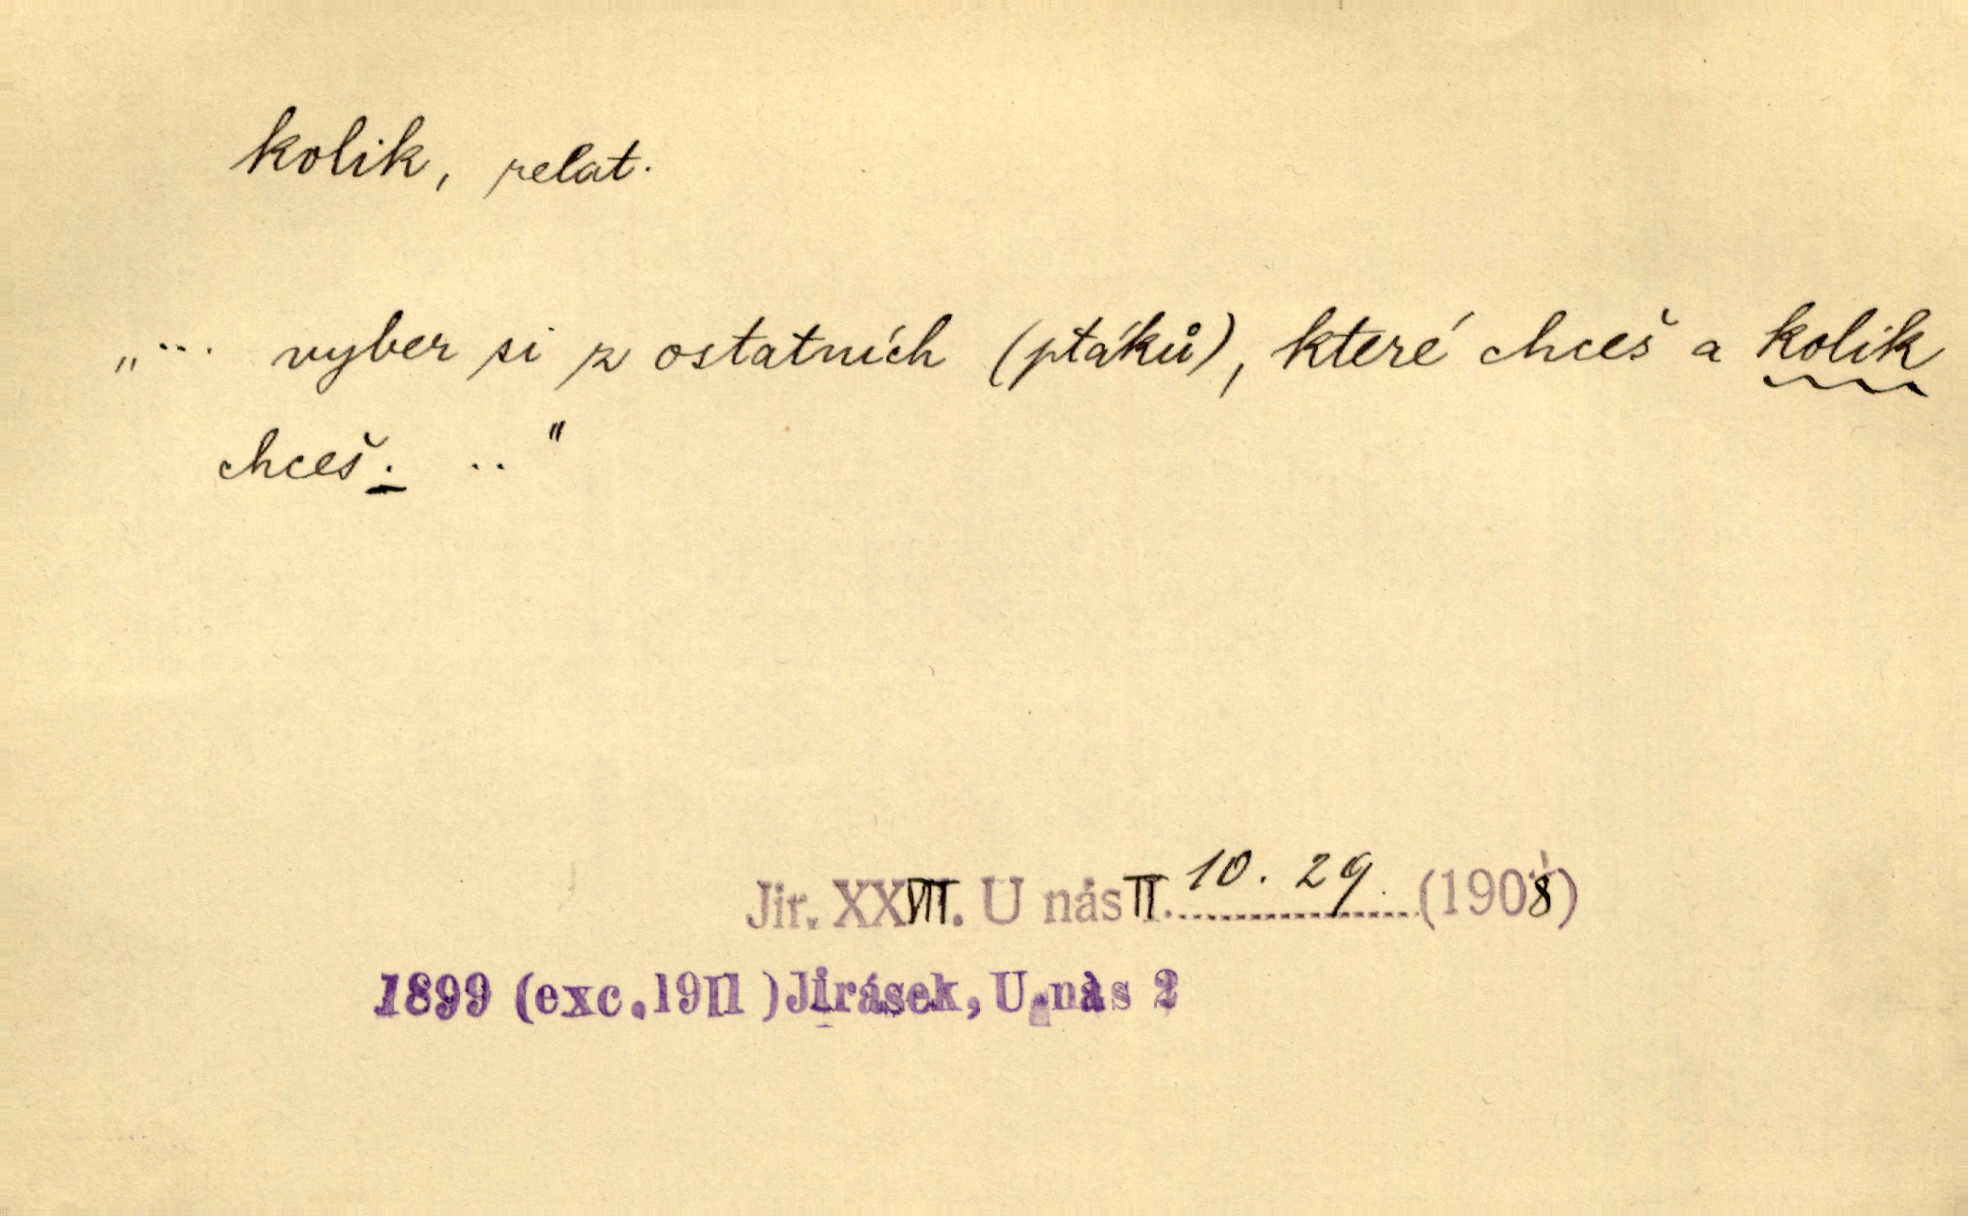 kolik, relat.
„... vyber si z ostatních (ptáků), které chceš a kolik
chceš. .."
Jir. XXVII. U nás II. 10. 29. (1908)
1899 (exc. 1911) Jirásek, U nás 2